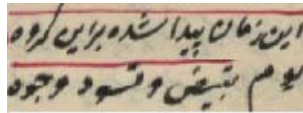 این زمان پیدا شده براین کروه
یوم تبیض و تسود وجوه